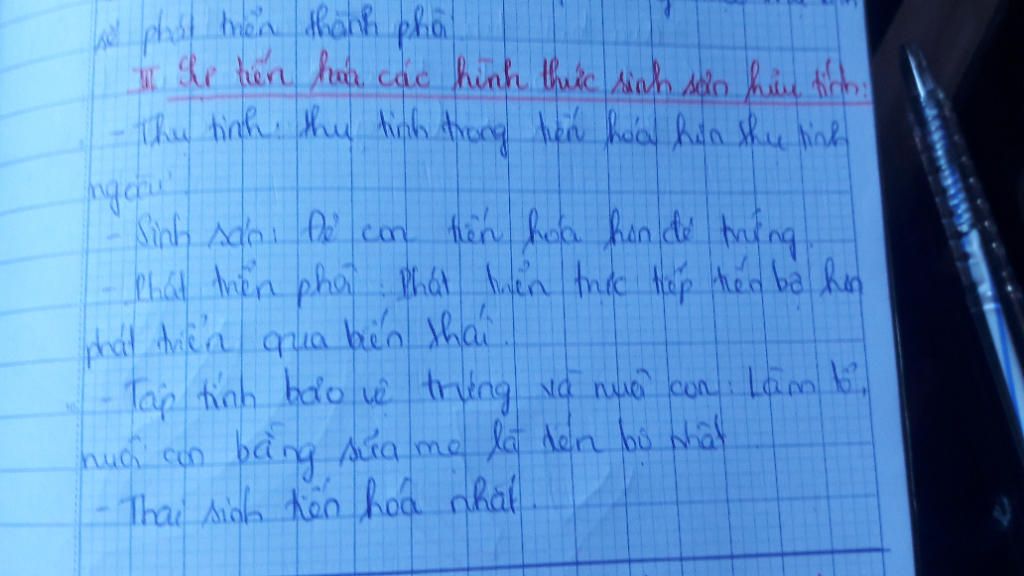 sẽ phát triển thành phôi
III Sự tiến hoá các hình thức sinh sản hữu tính:
- Thụ tinh: thụ tinh trong tiến hoá hơn thụ tinh
ngoài
- Sinh sản: Đẻ con tiến hoá hơn đẻ trứng.
- Phát triển phôi: Phát triển trực tiếp tiến bộ hơn
phát triển qua biến thái.
- Tập tính bảo vệ trứng và nuôi con: Làm tổ,
nuôi con bằng sữa mẹ là tiến bộ nhất.
- Thai sinh tiến hoá nhất.